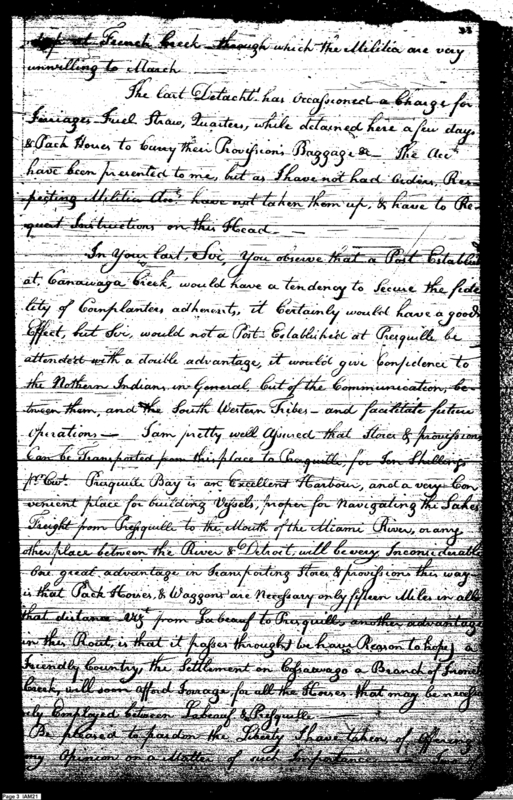 33
at French Creek through which the Militia are very
unwilling to March
The last Detacht. has occassioned a Charge for
Ferriages Fuel Straw, Quarters, while detained here a few days
& Pack Horses to Carry their Provisions Baggage &c — The Accts.
have been presented to me, but as I have not had Orders, Res-
pecting Militia Accts. have not taken them up, & have to Re-
quest Instructions on this Head —
In Your last, Sir, You observe that a Post Establish
at, Canawaga Creek, would have a tendency to Secure the fide
lity of Cornplanters adherents, it Certainly would have a good
Effect, but Sir, would not a Post Established at Presquile be
attended with a double advantage, it would give Confidence to
the Nothern Indians in General, Cut of the Communication, be-
tween them, and the South Western Tribes — and facilitate future
Operations — I am pretty well Assured that Stores & provissions
Can be Transported from this place to Presquille, for Ten Shillings
pr. Cwt. Presquile Bay is an Excellent Harbour, and a very Con
venient place for building Vessels, proper for Navigating the Lakes
Freight from Presquille to the Mouth of the Miami River, or any
other place between the River & Detroit, will be very Inconsiderable
One great advantage in Transporting Stores & provissions this way
is that Pack Horses, & Waggons are Necessary only fifteen Miles in all
that distance Vizt. from Labeauf to Presquille another advantage
in this Rout, is that it passes through (we have Reason to hope) a
Friendly Country, the Settlement on Cossawago a Branch of French
Creek, will soon afford Forrage, for all the Horses that may be necess
rily Employed between Labeauf & Presquille —
Be pleased to pardon the Liberty I have taken, of Offering
my Opinion on a Matter of such Importance —
Page 3 IAM21